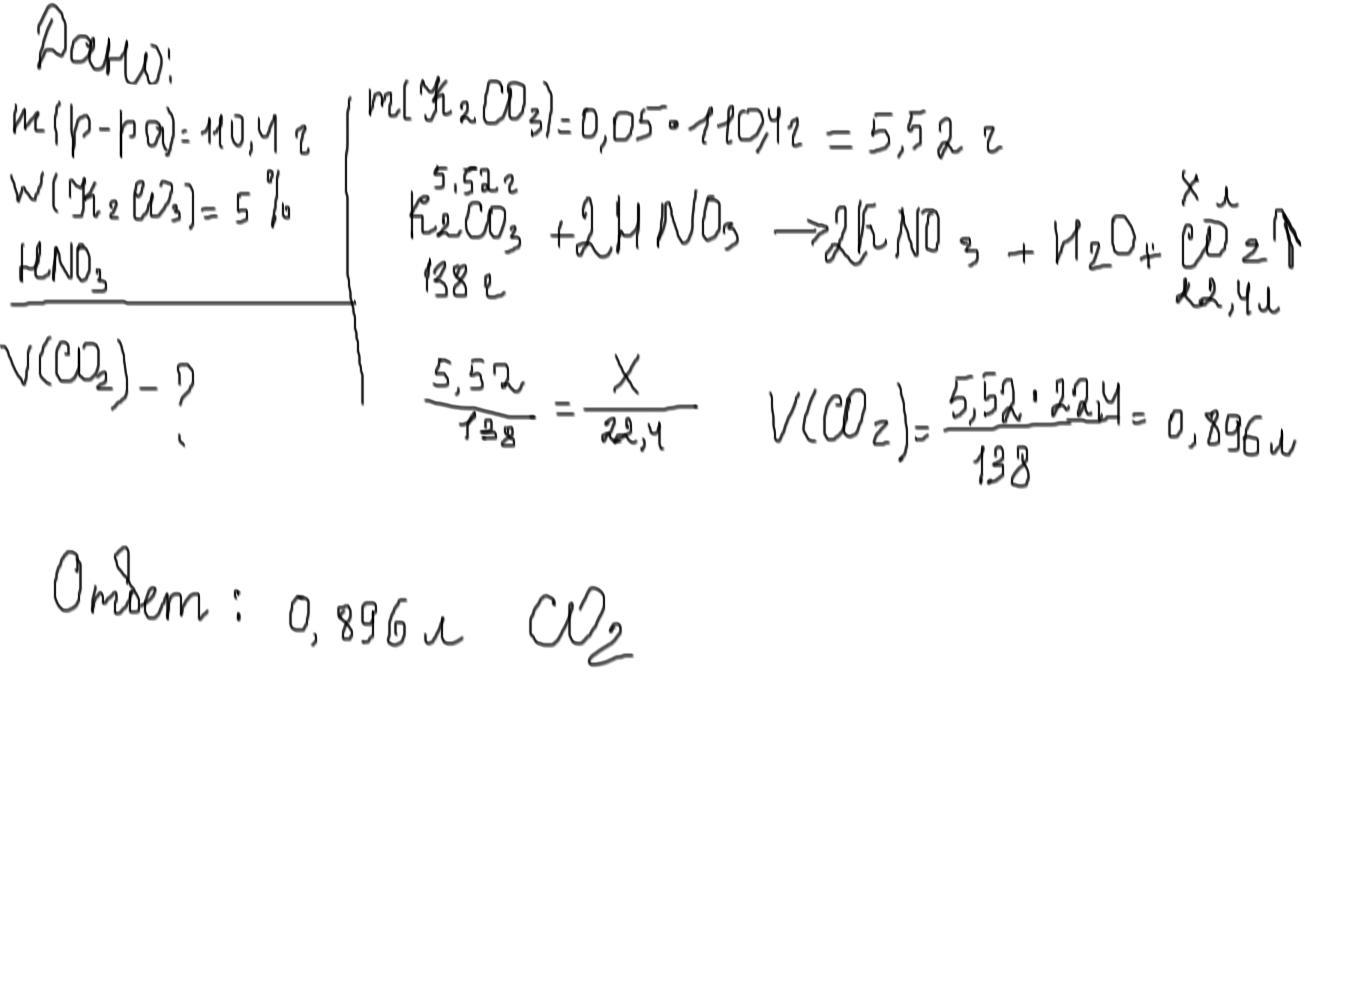 Дано:
m(р-ра)=110,4 г
W(K₂CO₃)=5%
HNO₃
V(CO₂)-?
m(K₂CO₃)=0,05·110,4г=5,52 г
5,52г X л
K₂CO₃+2HNO₃→2KNO₃+H₂O+CO₂↑
138 г 22,4л
5,52/138=X/22,4 V(CO₂)=5,52·22,4/138=0,896л
Ответ: 0,896 л CO₂